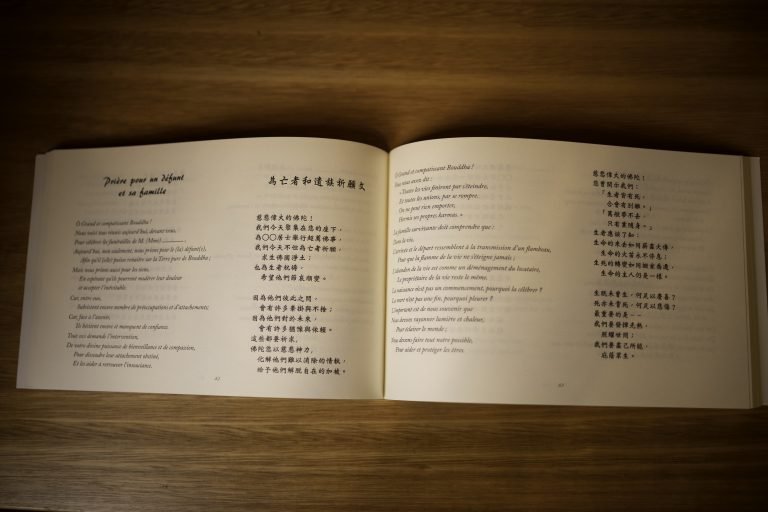 Prière pour un défunt
et sa famille
Ô Grand et compatissant Bouddha !
Nous voici tous réunis aujourd'hui, devant vous,
Pour célébrer les funérailles de M. (Mme) ............
Aujourd'hui, non seulement, nous prions pour le (la) défunt(e),
Afin qu'il (elle) puisse renaître sur la Terre pure de Bouddha ;
Mais nous prions aussi pour les siens,
En espérant qu'ils pourront modérer leur douleur
et accepter l'inévitable.
Car, entre eux,
Subsistent encore nombre de préoccupations et d'attachements;
Car, face à l'avenir,
Ils hésitent encore et manquent de confiance.
Tout ceci demande l'intervention,
De votre divine puissance de bienveillance et de compassion,
Pour dissoudre leur attachement obstiné,
Et les aider à retrouver l'insouciance.
為亡者和遺族祈願文
慈悲偉大的佛陀！
我們今天聚集在您的座下，
為〇〇居士舉行超薦佛事，
我們今天不但為亡者祈願，
求生佛國淨土；
也為生者祝禱，
希望他們節哀順變。
因為他們彼此之間，
會有許多牽掛與不捨；
因為他們對於未來，
會有許多猶豫與依賴。
這些都要祈求，
佛陀您以慈悲神力，
化解他們難以消除的情執，
給予他們解脫自在的加被。
Ô Grand et compatissant Bouddha !
Vous nous avez dit :
« Toutes les vies finiront par s'éteindre,
Et toutes les unions, par se rompre.
On ne peut rien emporter,
Hormis ses propres karmas. »
La famille survivante doit comprendre que :
Dans la vie,
L'arrivée et le départ ressemblent à la transmission d'un flambeau,
Pour que la flamme de la vie ne s'éteigne jamais ;
L'abandon de la vie est comme un déménagement du locataire,
Le propriétaire de la vie reste le même.
La naissance n'est pas un commencement, pourquoi la célébrer ?
La mort n'est pas une fin, pourquoi pleurer ?
L'important est de nous souvenir que
Nous devons rayonner lumière et chaleur,
Pour éclairer le monde ;
Nous devons faire tout notre possible,
Pour aider et protéger les êtres.
慈悲偉大的佛陀！
您曾開示我們：
「生者皆有死，
合會有別離。」
「萬般帶不去，
只有業隨身。」
生者應該了知：
生命的來去如同薪盡火傳，
生命的火苗永不停息；
生死的轉變如同搬家喬遷，
生命的主人仍是一樣。
生既未曾生，何足以慶喜？
死亦未曾死，何足以悲傷？
最重要的是－－
我們要發揮光熱，
照耀世間；
我們要盡己所能，
庇蔭眾生。